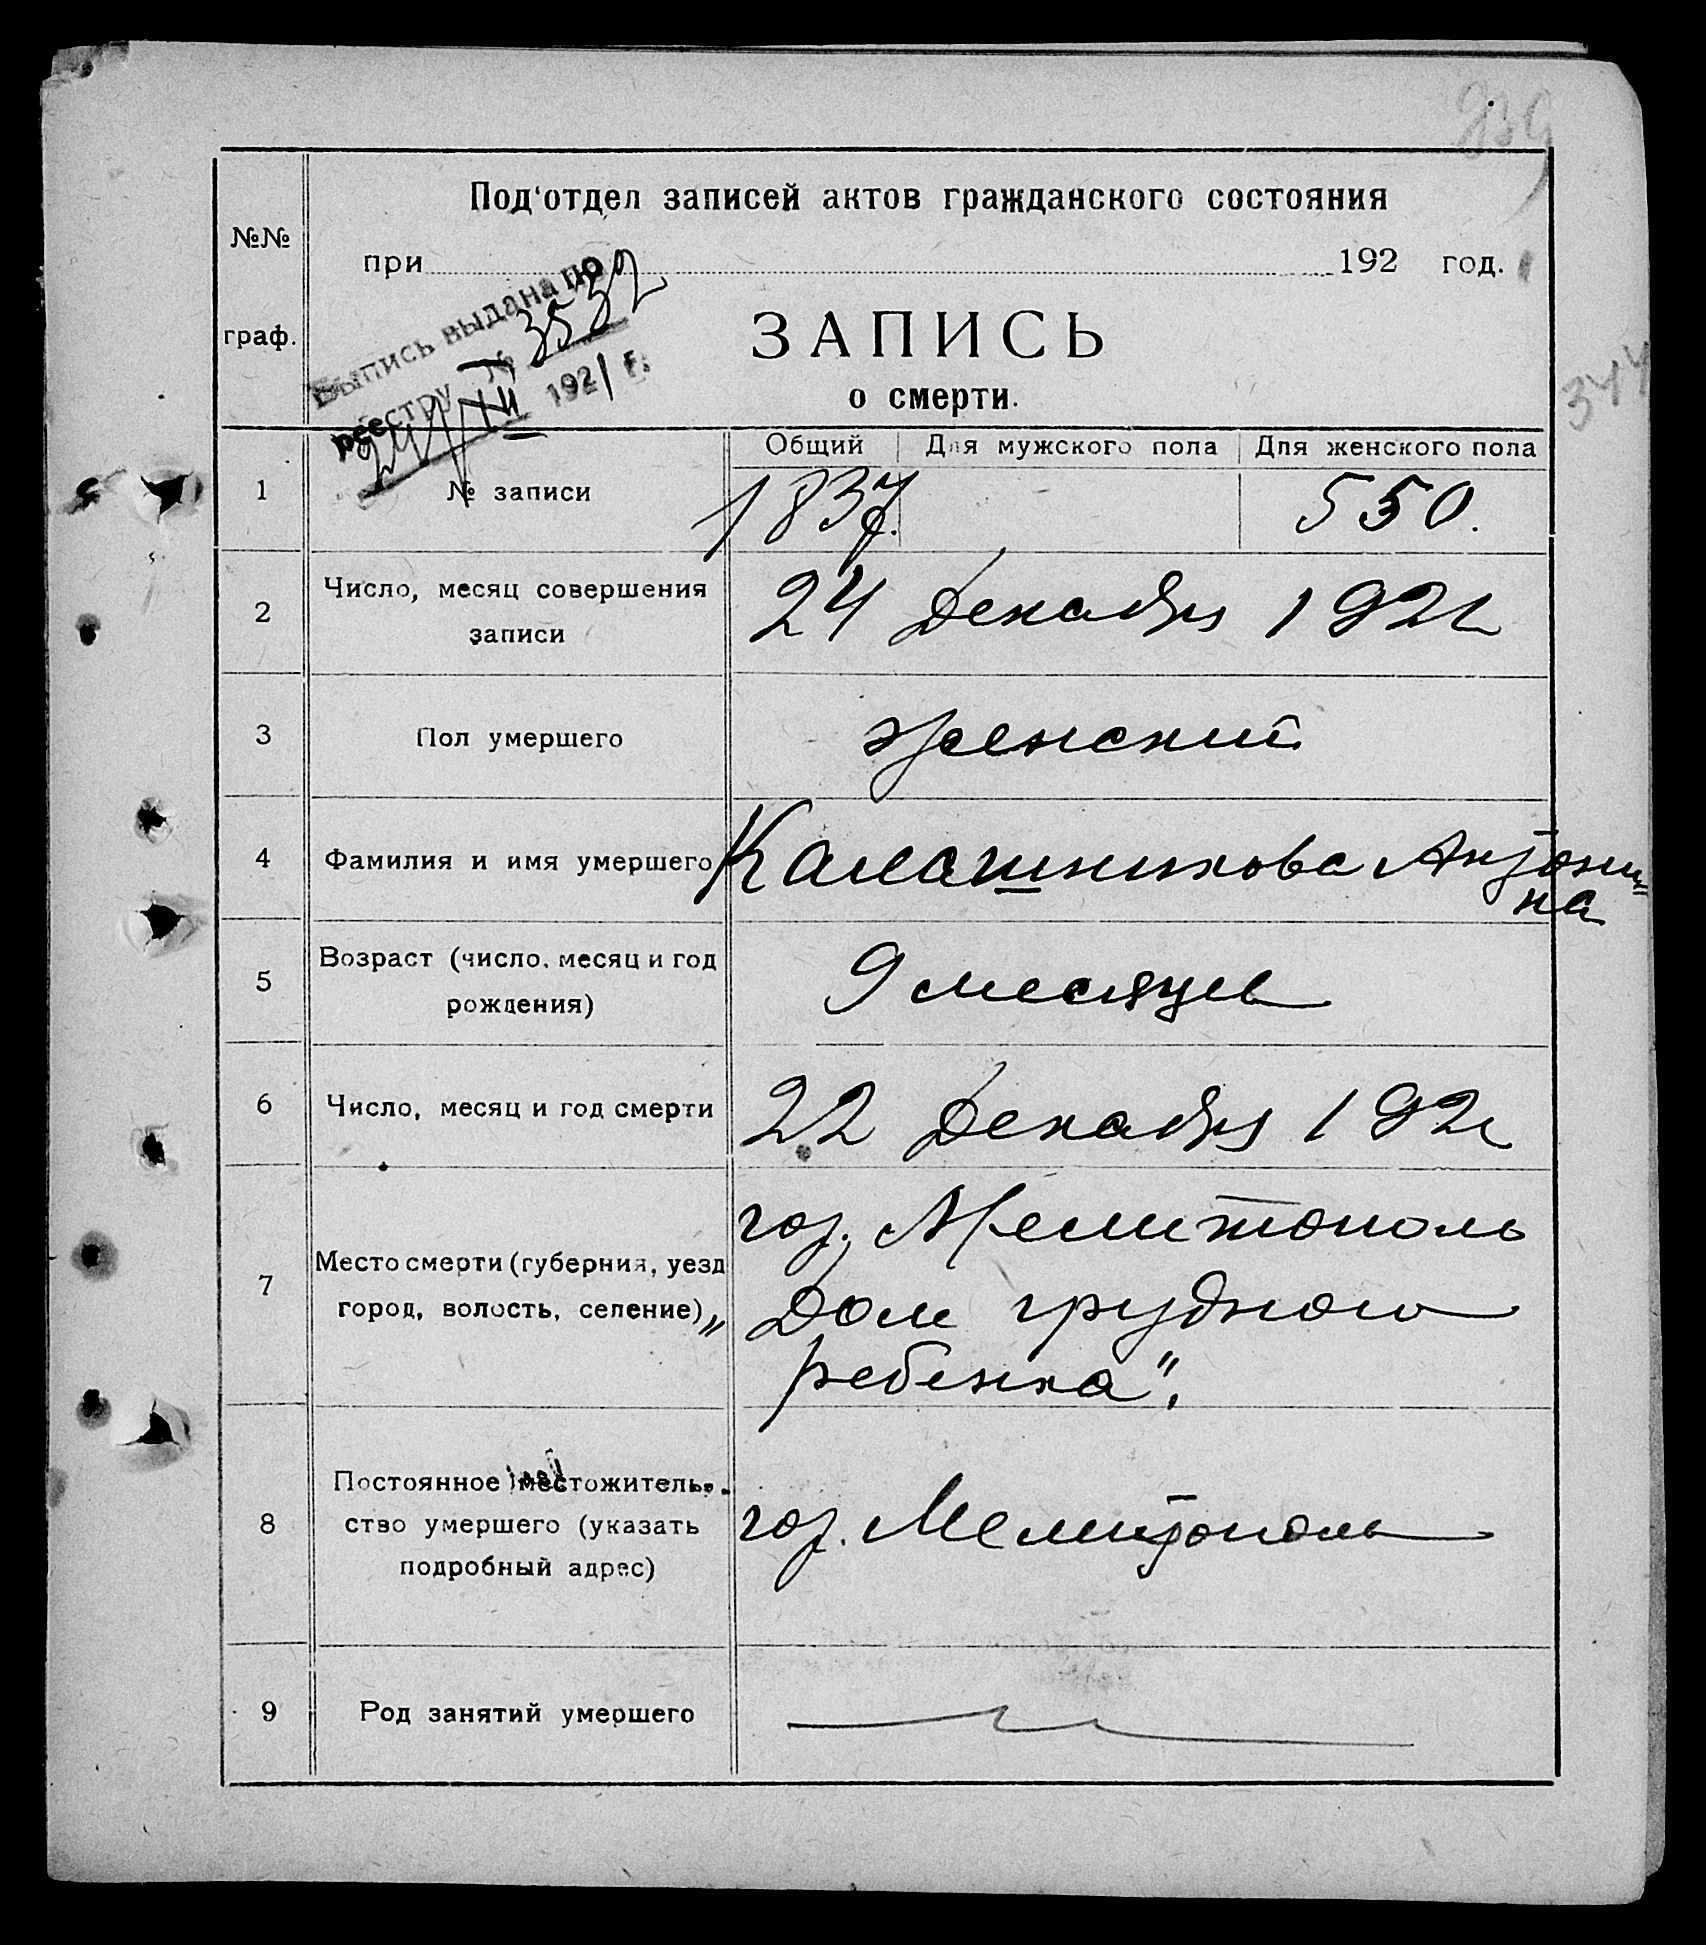 239
Под‘отдел записей актов гражданского состояния
№№
при 192 год.
Выпись выдана по
реестру № 3532
24/XII 1921 г.
граф.
ЗАПИСЬ
о смерти.
344
Общий Для мужского пола Для женского пола
1 № записи 1837. 550.
2 Число, месяц совершения
записи
24 Декабря 1921
3 Пол умершего женский
4 Фамилия и имя умершего Калашникова Антони=
на
5 Возраст (число, месяц и год
рождения)
9 месяцев
6 Число, месяц и год смерти 22 Декабря 1921
7 Место смерти (губерния, уезд
город, волость, селение)
гор. Мелитополь
„Дом грудного
ребенка".
8 Постоянное местожитель-
ство умершего (указать
подробный адрес)
гор. Мелитополь
9 Род занятий умершего